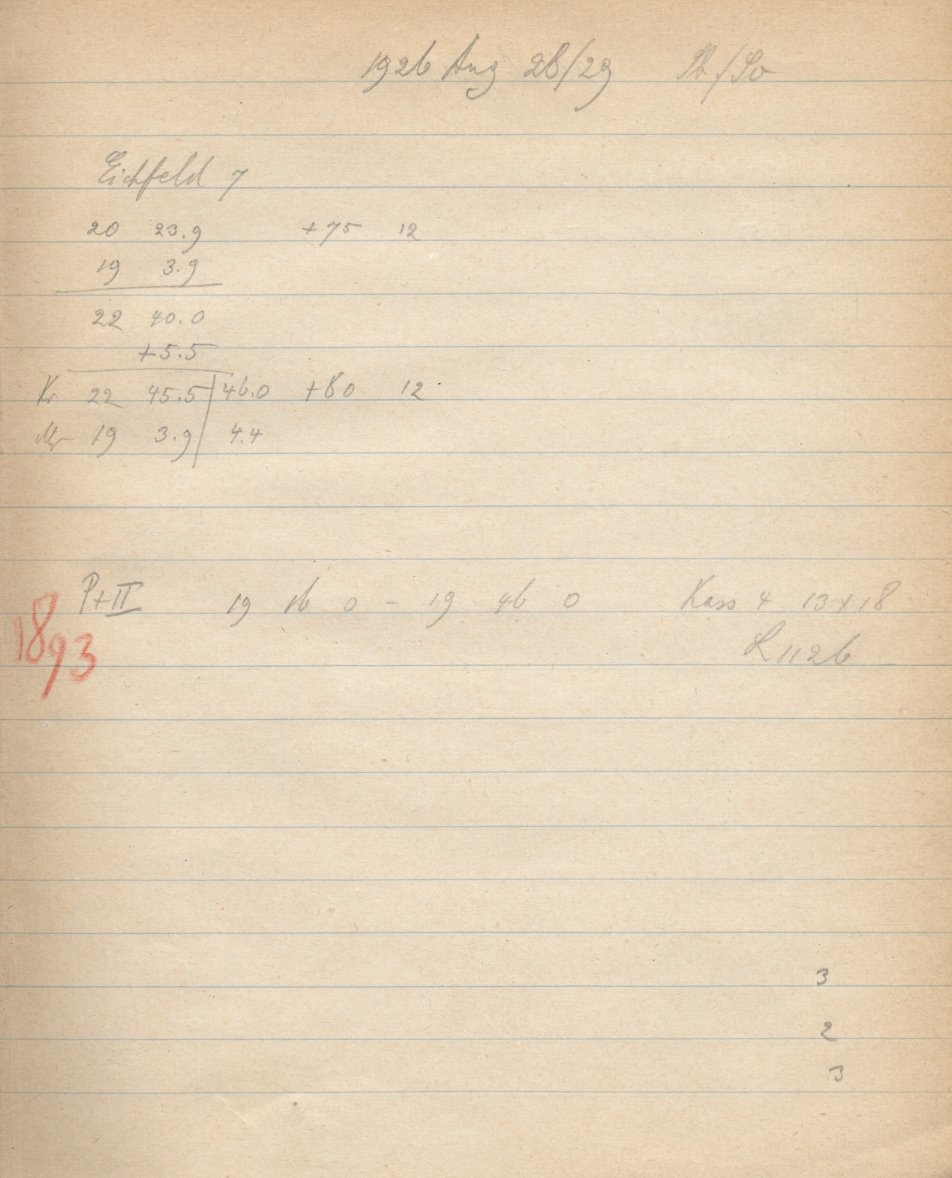 1926 Aug 28/29 Sa/So
Eichfeld 7
20 23.9 +75 12
19 3.9
22 40.0
+5.5
Kr 22 45.5 46.0 +80 12
19 3.9 4.4
P+II 19 16 0 – 19 46 0 Kass 4 13x18
1893
L 1126
3
2
3